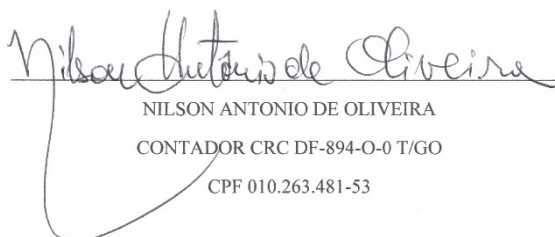 Nilson Antônio de Oliveira
NILSON ANTONIO DE OLIVEIRA
CONTADOR CRC DF-894-O-0 T/GO
CPF 010.263.481-53